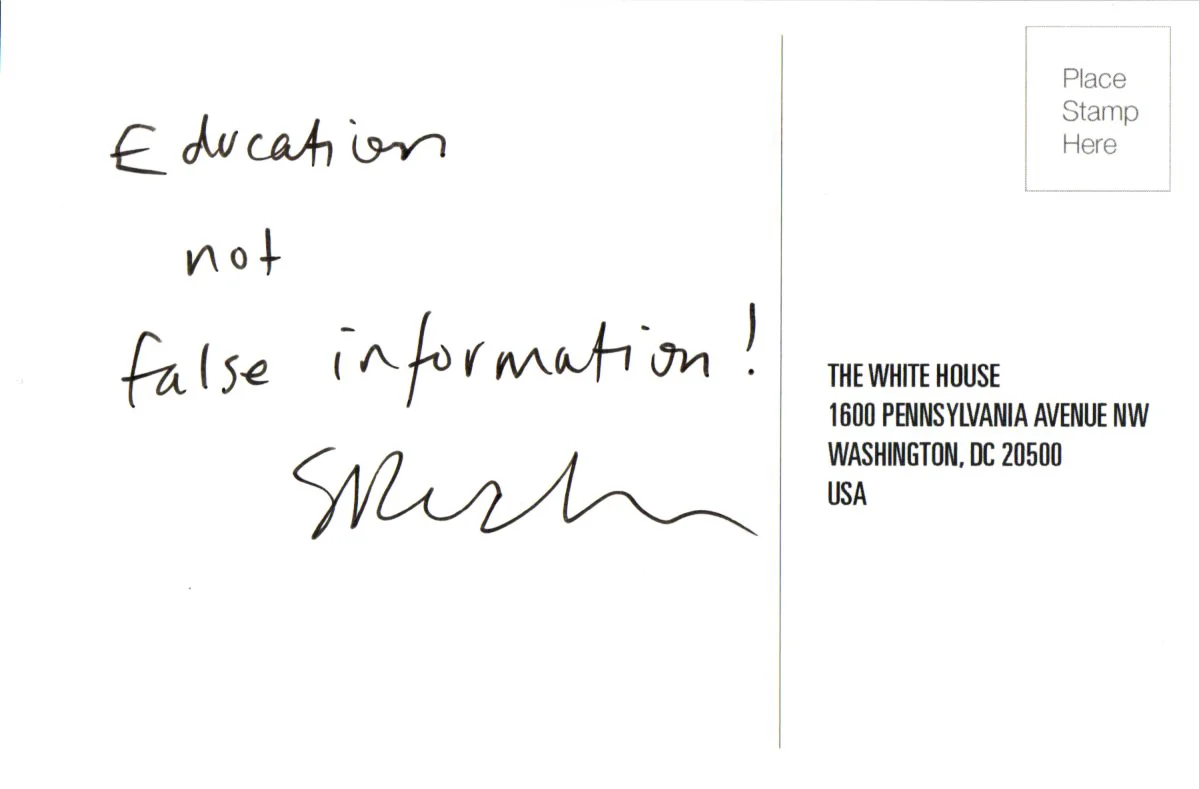 Education
not
false information!
Place
Stamp
Here
THE WHITE HOUSE
1600 PENNSYLVANIA AVENUE NW
WASHINGTON, DC 20500
USA